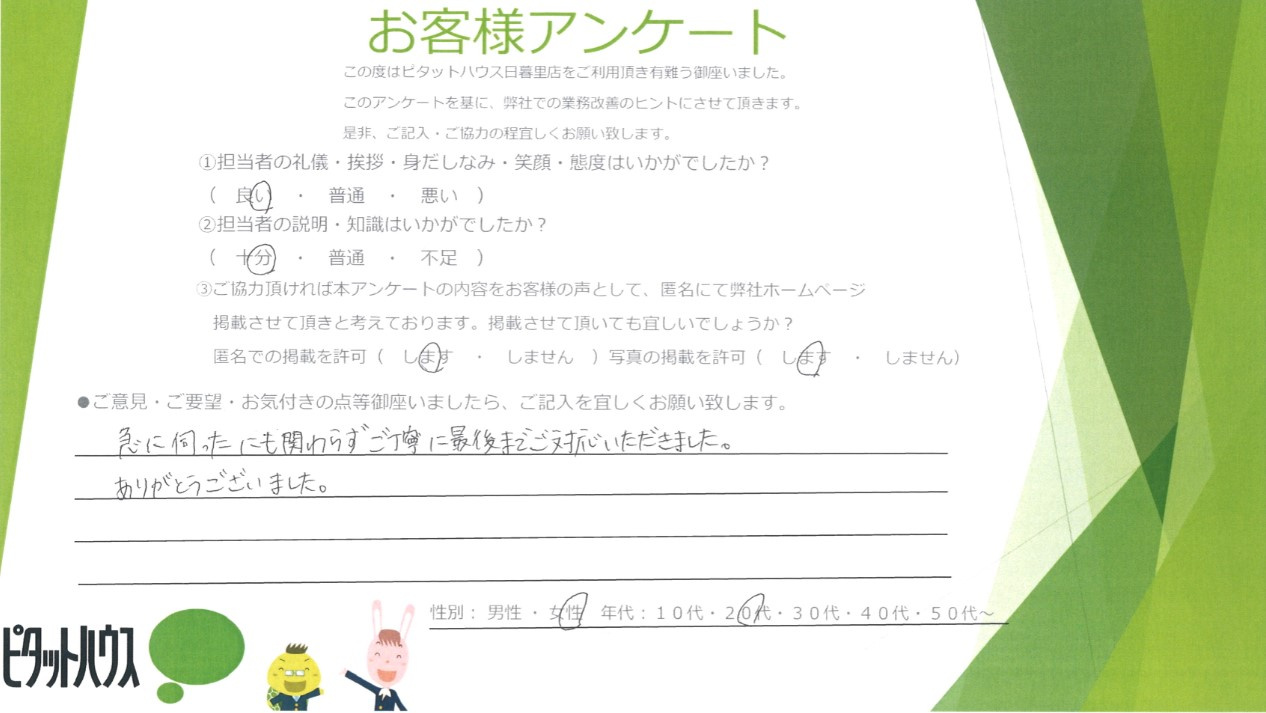 お客様アンケート
この度はピタットハウス日暮里店をご利用頂き有難う御座いました。
このアンケートを基に、弊社での業務改善のヒントにさせて頂きます。
是非、ご記入・ご協力の程宜しくお願い致します。
①担当者の礼儀・挨拶・身だしなみ・笑顔・態度はいかがでしたか？
（　良い　・　普通　・　悪い　）
②担当者の説明・知識はいかがでしたか？
（　十分　・　普通　・　不足　）
③ご協力頂ければ本アンケートの内容をお客様の声として、匿名にて弊社ホームページ
掲載させて頂きと考えております。掲載させて頂いても宜しいでしょうか？
匿名での掲載を許可（　します　・　しません　）写真の掲載を許可（　します　・　しません）
●ご意見・ご要望・お気付きの点等御座いましたら、ご記入を宜しくお願い致します。
急に伺ったにも関わらずご丁寧に最後までご対応いただきました。
ありがとうございました。
性別：男性・女性　年代：１０代・２０代・３０代・４０代・５０代～
ピタットハウス